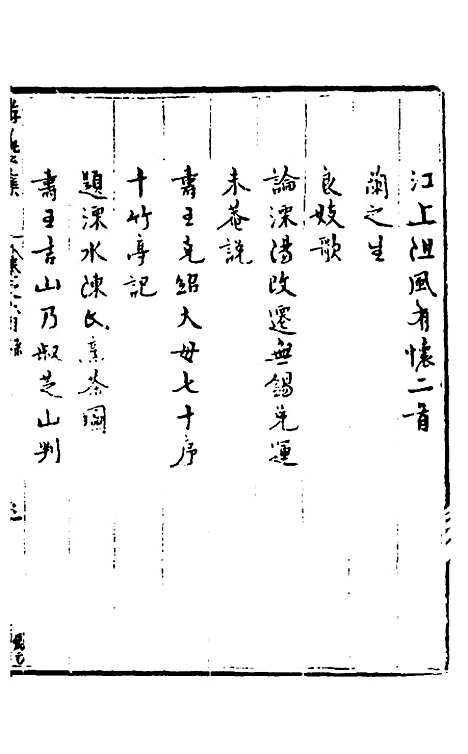 江上阻風有懷二首
蘭之生
良妓歌
論溧陽改遷無錫兌運
未菴說
壽王克紹大母七十序
十竹亭記
題溧水陳氏烹茶圖
壽王吉山乃叔芝山判
卷之六目錄
三